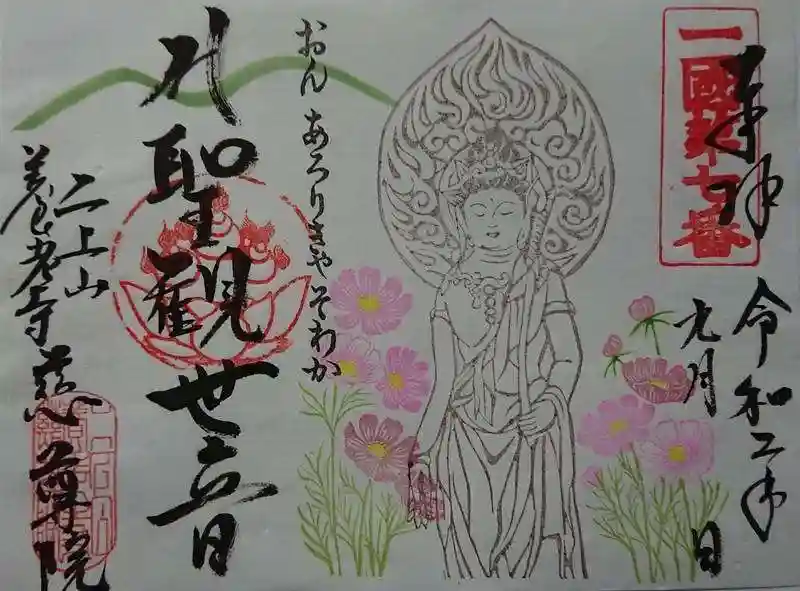 一國第七番
奉拝
令和二年
九月 日
おん あろりきゃ そわか
聖觀世音
二上山
養老寺 慈尊院